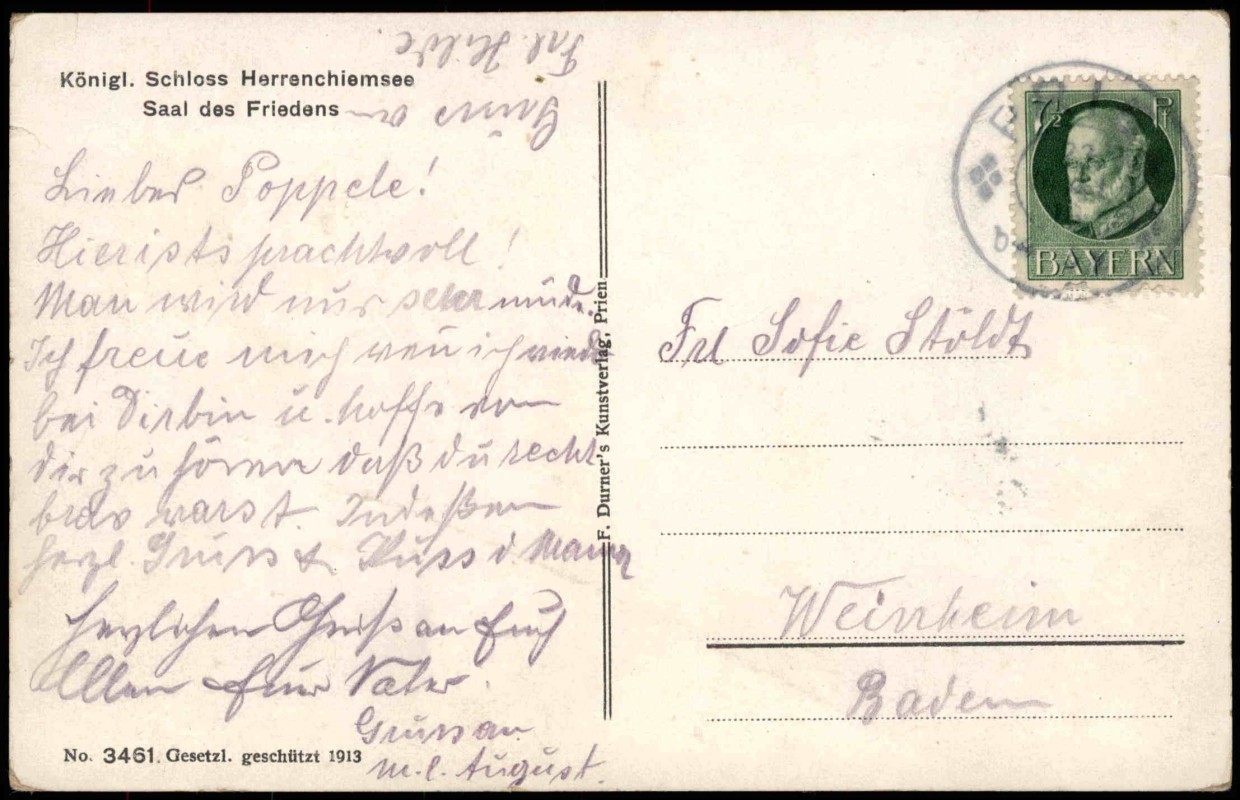 Königl. Schloss Herrenchiemsee
Saal des Friedens
Liebes Poppele!
Hier ists prachtvoll!
Man wird nur sehr müde.
Ich freue mich wen ich wied
bei Dir bin u. hoffe von
dir zu hören daß du recht
brav warst. Indeßen
herzl. Gruss & Kuss d. Mama
Herzlichen Gruß an Euch
Allen Euer Vater.
Gruss an
m. l. August.
Gruss v.
Frl. Hilde.
No. 3461. Gesetzl. geschützt 1913
F. Durner's Kunstverlag, Prien
7½ Pf
BAYERN
Frl Sofie Stöldt
Weinheim
Baden